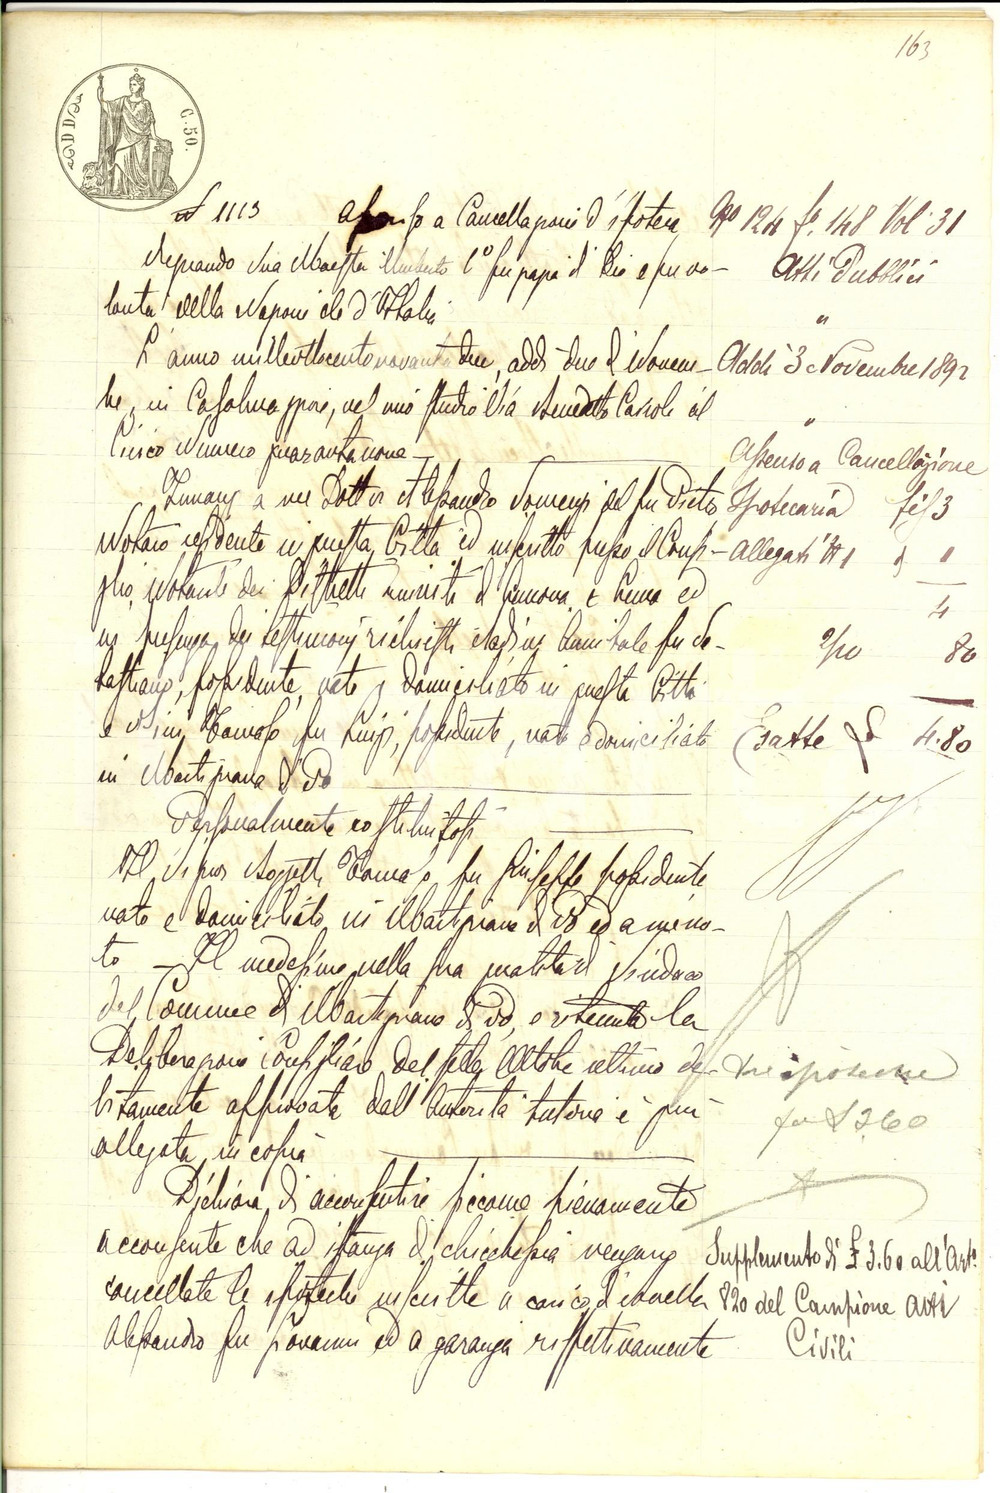 163
C. 50.
N 1113 Assenso a Cancellazione d'ipoteca
Regnando Sua Maestà Umberto I° per grazia di Dio e per vo-
lontà della Nazione Re d'Italia
L'anno milleottocentonovantadue, addì due di Novem-
bre, in Casalmaggiore, nel mio studio Via Benedetto Cairoli al
Civico Numero quarantanove
Innanzi a me Dottor Alessandro del fu Pietro
Notaro residente in questa Città ed inscritto presso il Consi-
glio Notarile dei Distretti riuniti di Cremona e Crema ed
in presenza dei testimoni richiesti Annibale fu Se-
bastiano, possidente, nato e domiciliato in questa Città
e Tomaso fu Luigi, possidente, nato e domiciliato
in Martignana di Po
Personalmente costituitosi
Il Signor Tomaso fu Giuseppe possidente
nato e domiciliato in Martignana di Po ed a me no-
to _ Il medesimo nella sua qualità di Sindaco
del Comune di Martignana di Po, e ritenuta la
Deliberazione Consigliare del sette Ottobre ultimo de-
bitamente approvata dall'Autorità tutoria e qui
allegata in copia
Dichiara di acconsentire siccome pienamente
acconsente che ad istanza di chicchessia vengano
cancellate le ipoteche inscritte a carico di
Alessandro fu Giovanni ed a garanzia rispettivamente
N° 124 f. 148 Vol. 31
Atti Pubblici
"
Addì 3 Novembre 1892
"
Assenso a Cancellazione
Ipotecaria 3
Allegati N 1 1
4
80
Esatte £ 4.80
£ 3.60
Supplemento di £ 3.60 all'Art°
820 del Campione Atti
Civili